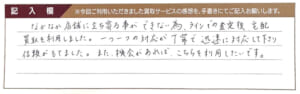 記入欄 ※今回ご利用いただきました買取サービスの感想を、手書きにてご記入お願いします。
なかなか店舗に立ち寄る事ができない為、ラインでの査定後、宅配
買取を利用しました。一つ一つの対応が丁寧で迅速に対応して下さり
信頼がもてました。また、機会があれば、こちらを利用したいです。